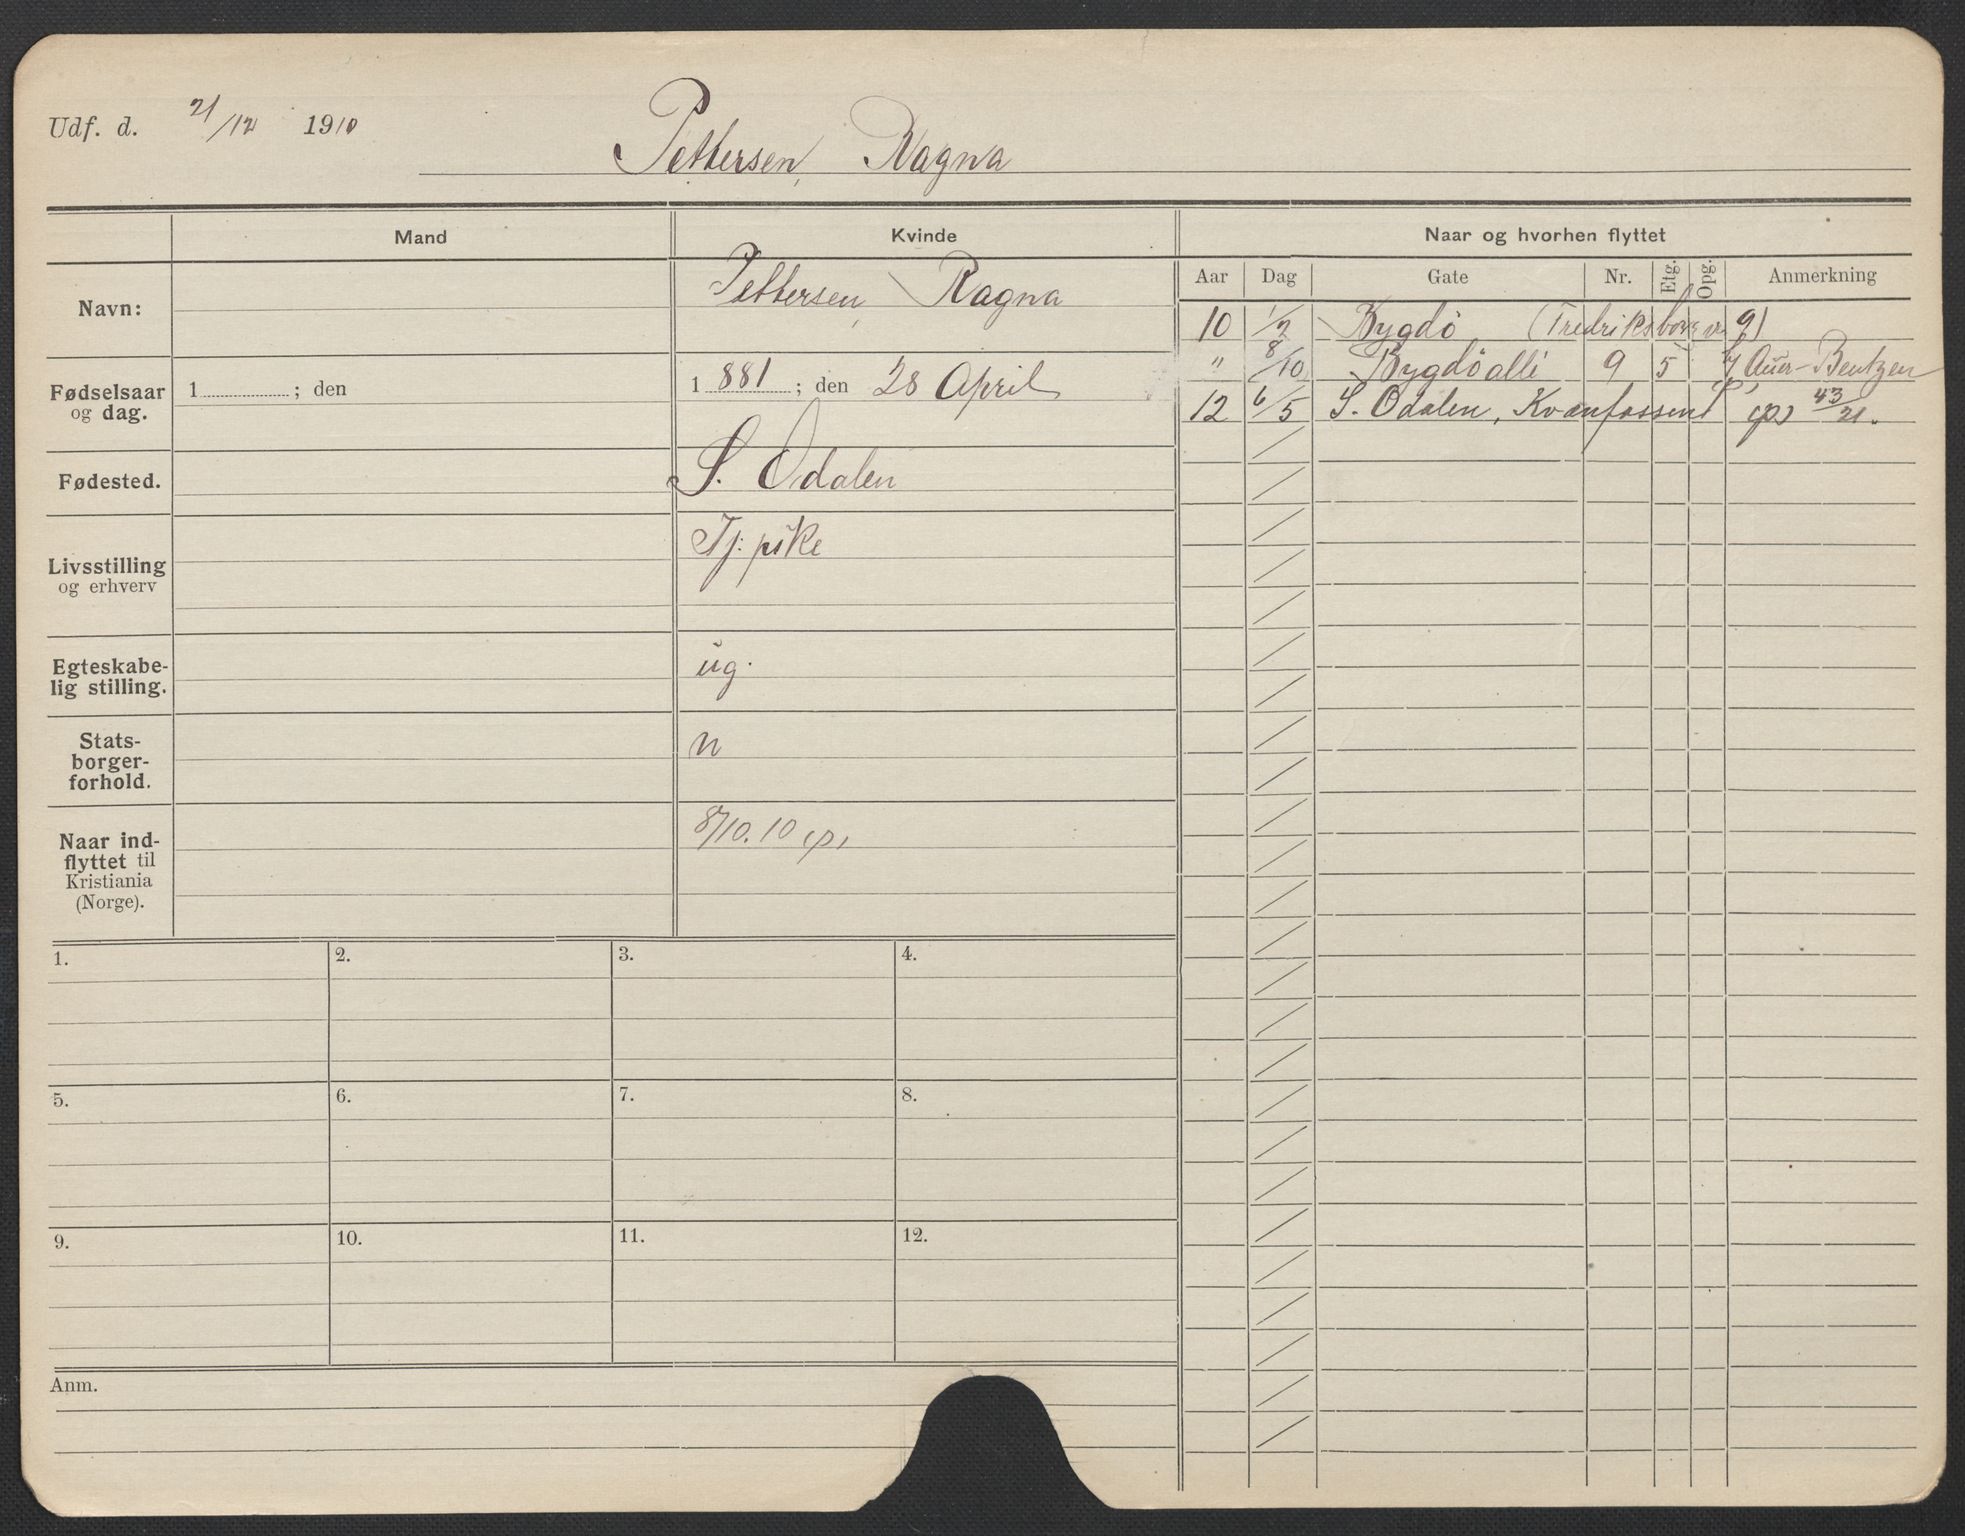 Udf. d. 21/12 1910
Pettersen, Ragna
Mand
Kvinde
Naar og hvorhen flyttet
Navn:
Pettersen, Ragna
Aar Dag Gate Nr. Etg. Opg. Anmerkning
10 1/2 Bygdö (Fredriksborgvn 9)
" 8/10 Bygdöalli 9 5 Auer-Bentzen
12 6/5 S. Odalen, Kvænfossent (p) 43/21.
Fødselsaar
og dag.
1 ; den
1 881 ; den 28 April
Fødested.
S. Odalen
Livsstilling
og erhverv
Tj: pike
Egteskabe-
lig stilling.
ug.
Stats-
borger-
forhold.
n
Naar ind-
flyttet til
Kristiania
(Norge).
8/10.10 (p)
1. 2. 3. 4.
5. 6. 7. 8.
9. 10. 11. 12.
Anm.